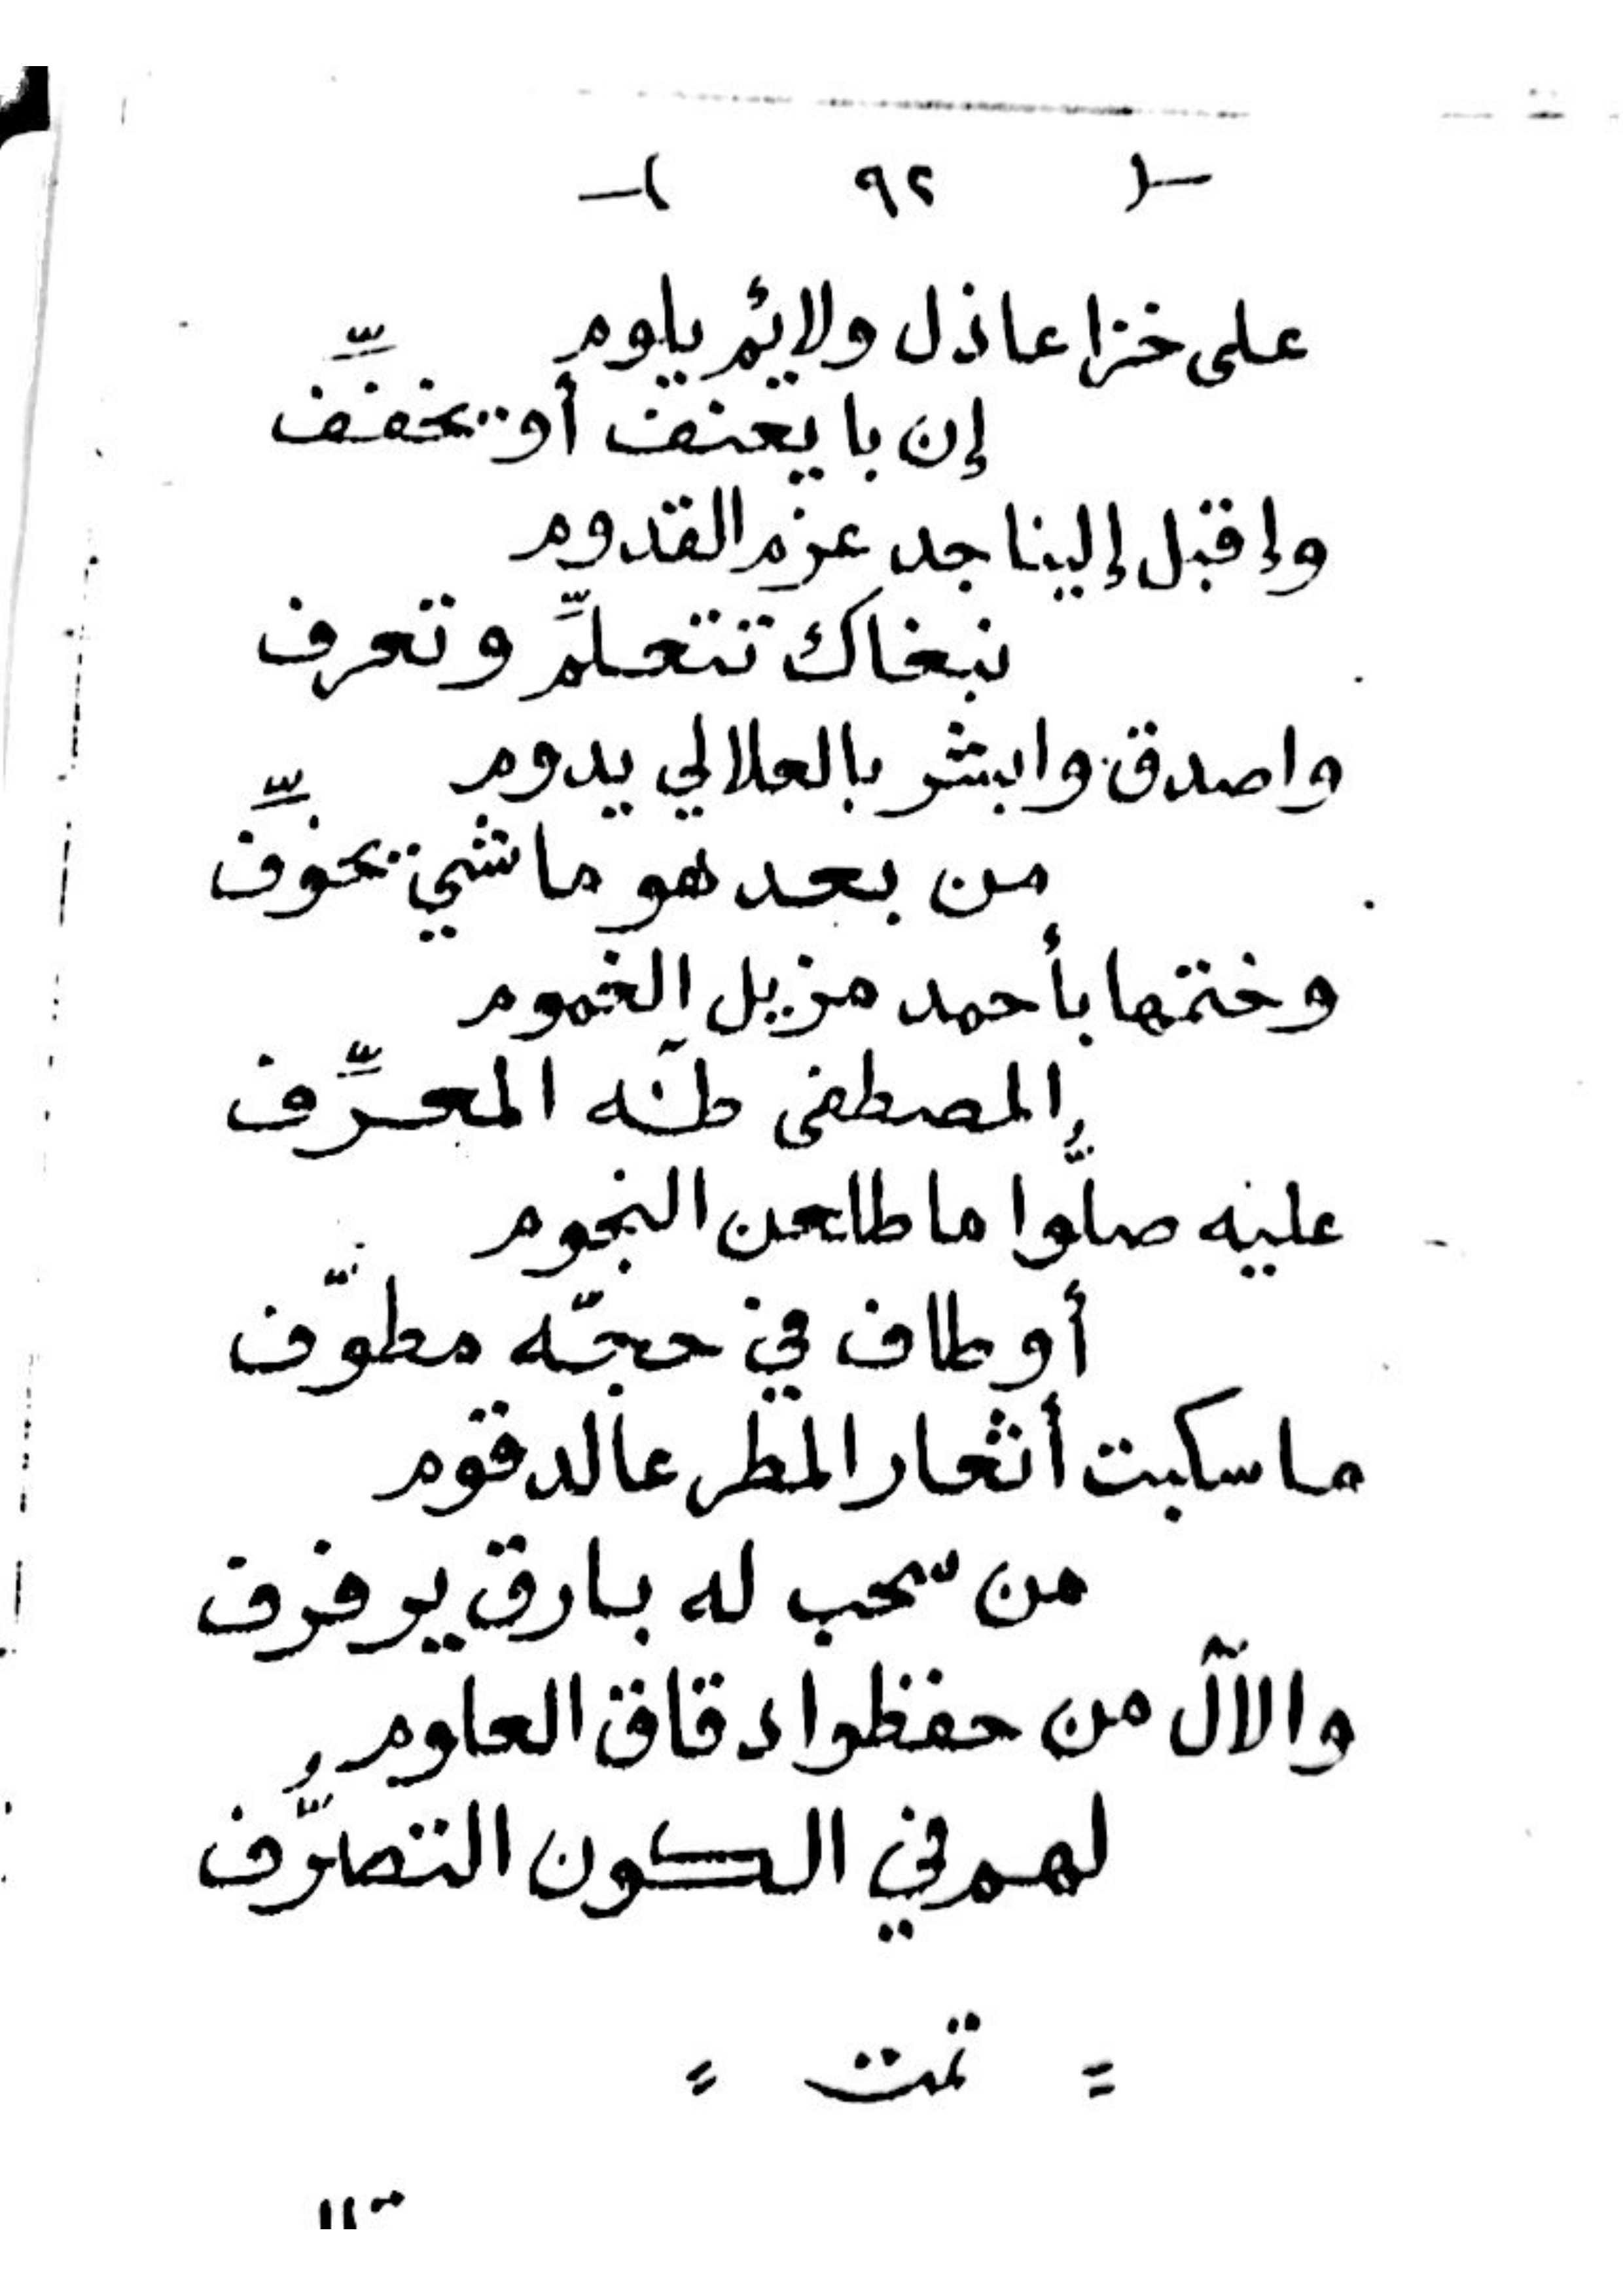 -( ٩٢ )-
على خزا عاذل ولائم يلوم
إن با يعنف أو يخفِّف
وإقبل إلينا جد عزم القدوم
نبغاك تتعلِّم وتعرف
واصدق وابشر بالعلالي يدوم
من بعد هو ما شي يخوِّف
وختمها بأحمد مزيل الغموم
المصطفى طه المعرِّف
عليه صلُّوا ما طلعن النجوم
أو طاف في حجّه مطوّف
ما سكبت أثعار المطر عالدقوم
من سحب له بارق يرفرف
والآل من حفظوا دقاق العلوم
لهم في الكون التصرُّف
= تمت =